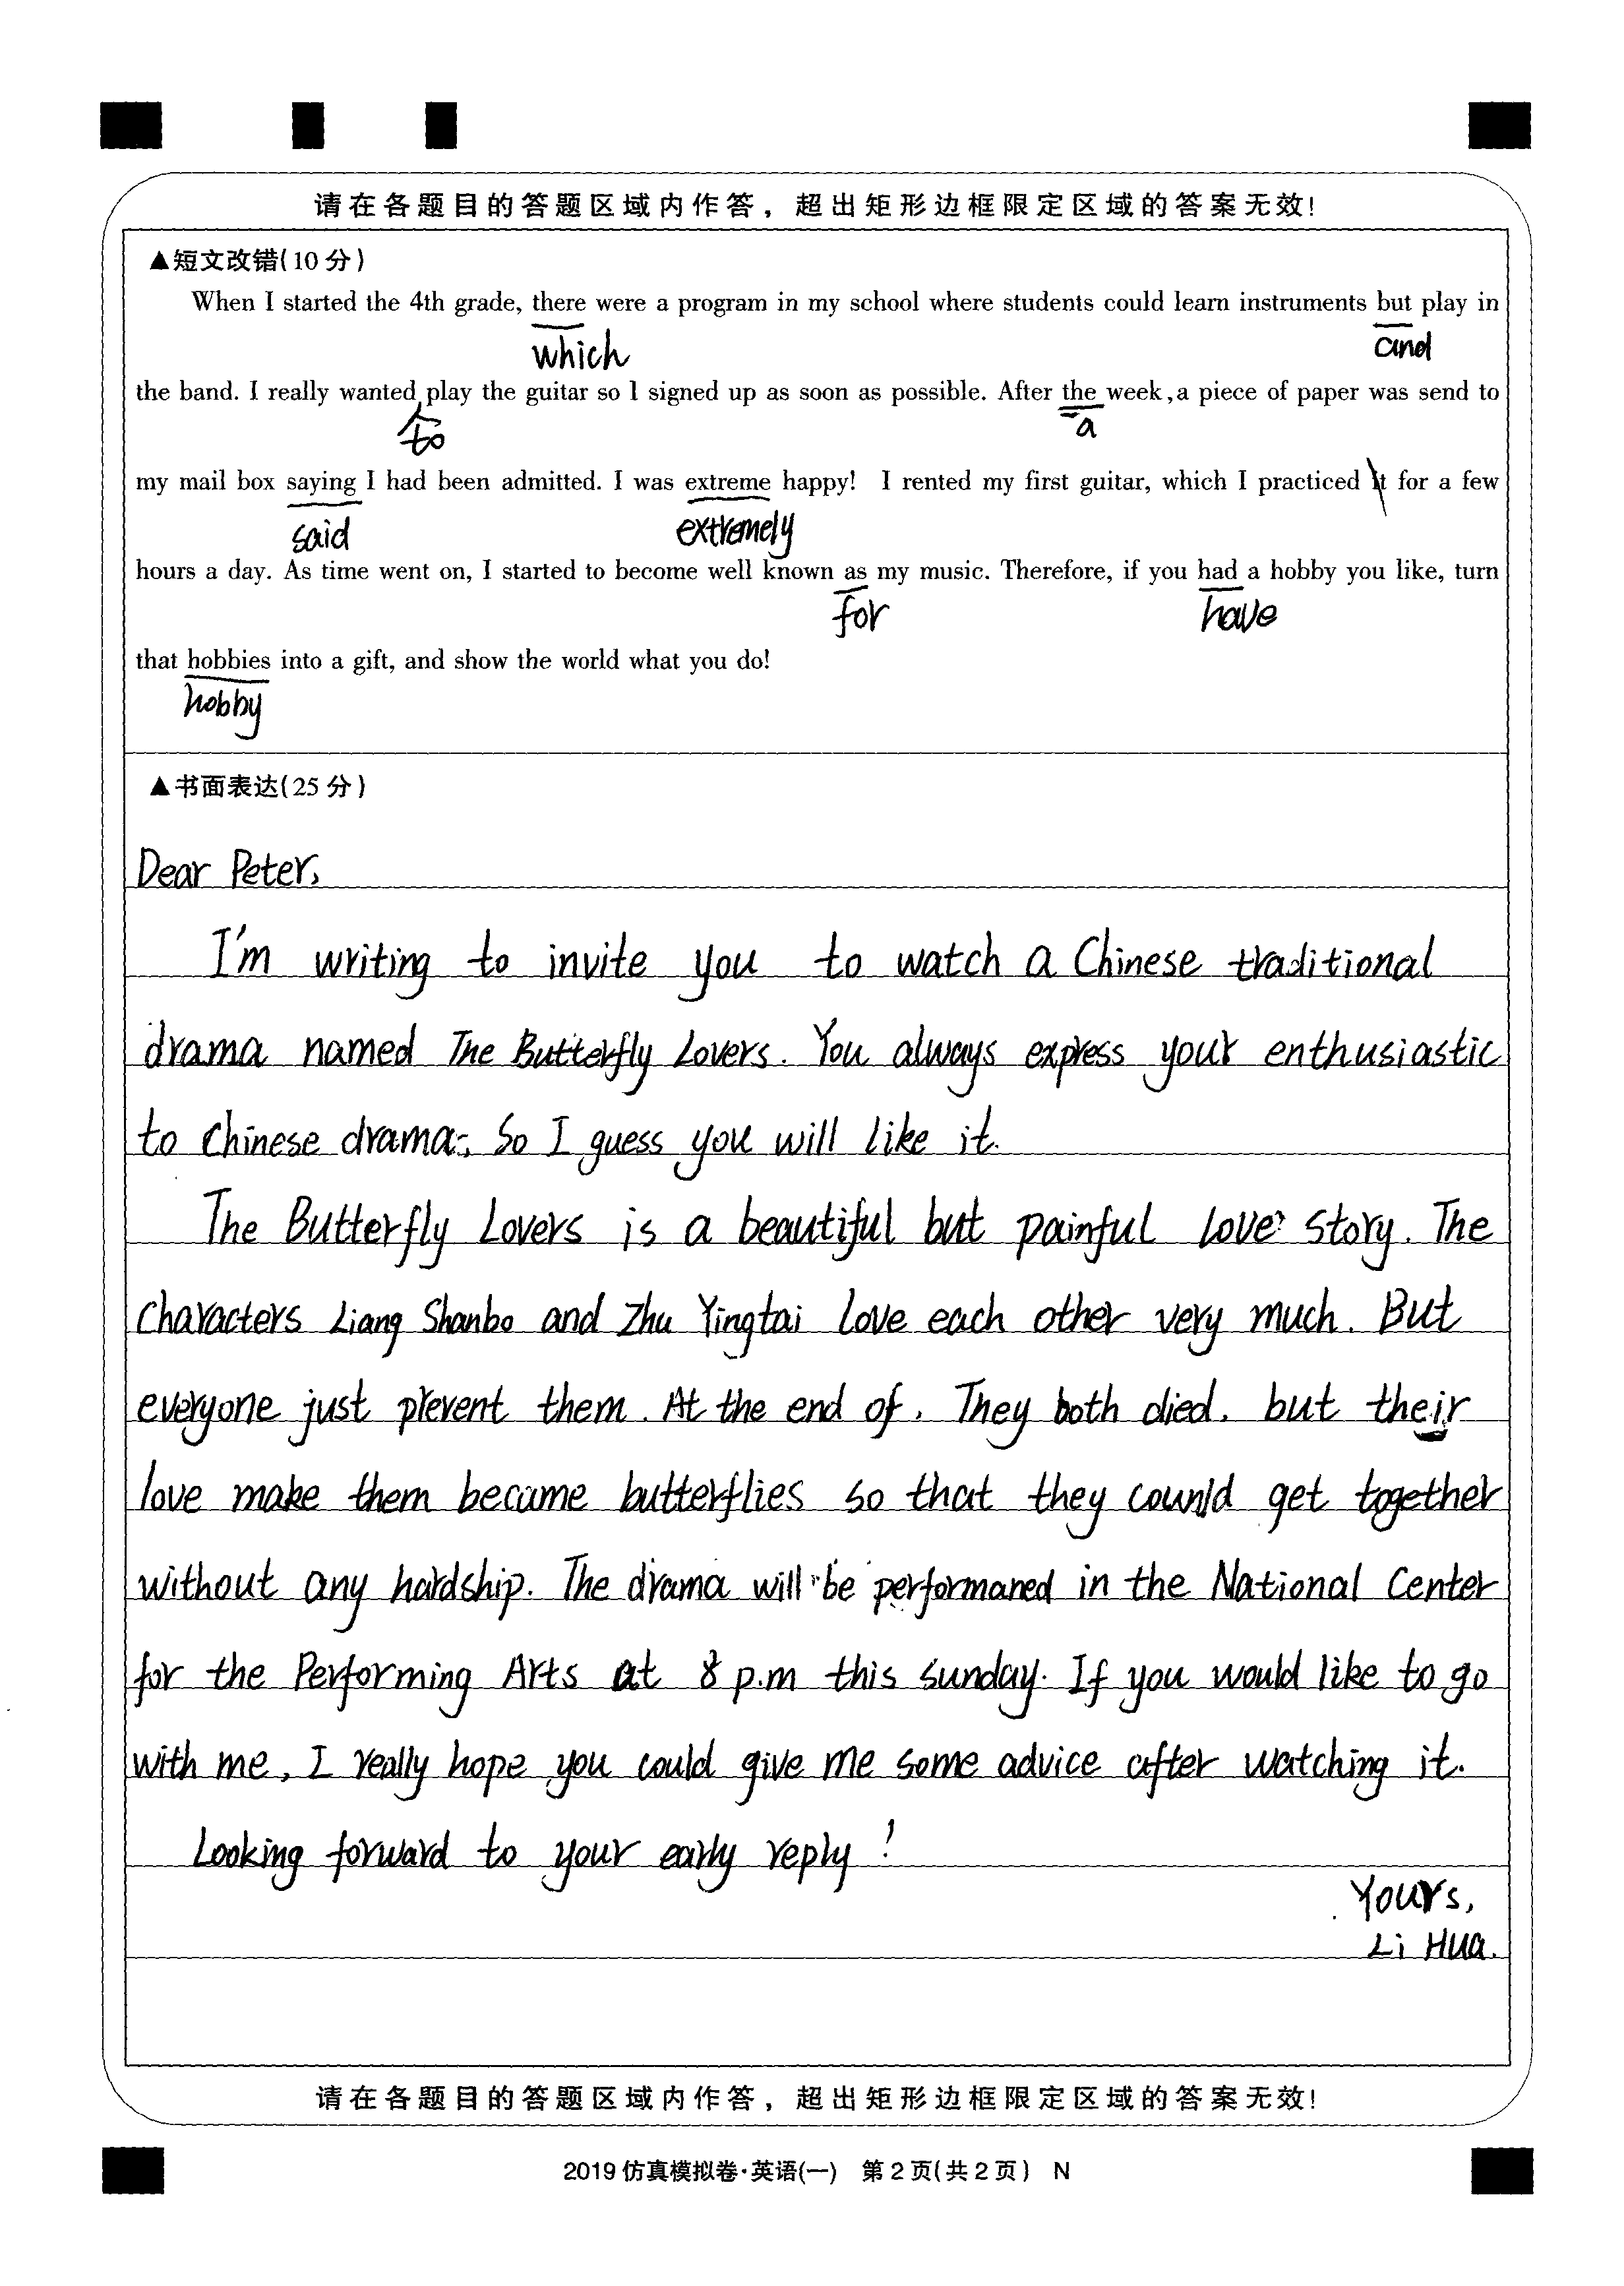 请在各题目的答题区域内作答，超出矩形边框限定区域的答案无效!
▲短文改错(10分)
When I started the 4th grade, there were a program in my school where students could learn instruments but play in
which
and
the band. I really wanted play the guitar so I signed up as soon as possible. After the week, a piece of paper was send to
to
a
my mail box saying I had been admitted. I was extreme happy! I rented my first guitar, which I practiced it for a few
said
extremely
hours a day. As time went on, I started to become well known as my music. Therefore, if you had a hobby you like, turn
for
have
that hobbies into a gift, and show the world what you do!
hobby
▲书面表达(25分)
Dear Peter,
I'm writing to invite you to watch a Chinese traditional
drama named The Butterfly Lovers. You always express your enthusiastic
to Chinese drama, So I guess you will like it.
The Butterfly Lovers is a beautiful but painful love story. The
characters Liang Shanbo and Zhu Yingtai love each other very much. But
everyone just prevent them. At the end of, They both died, but their
love make them became butterflies so that they get together
without any hardship. The drama will be performaned in the National Center
for the Performing Arts at 8 p.m this Sunday. If you would like to go
with me, I really hope you could give me some advice after watching it.
Looking forward to your early reply!
Yours,
Li Hua.
请在各题目的答题区域内作答，超出矩形边框限定区域的答案无效!
2019仿真模拟卷·英语(一) 第2页(共2页) N